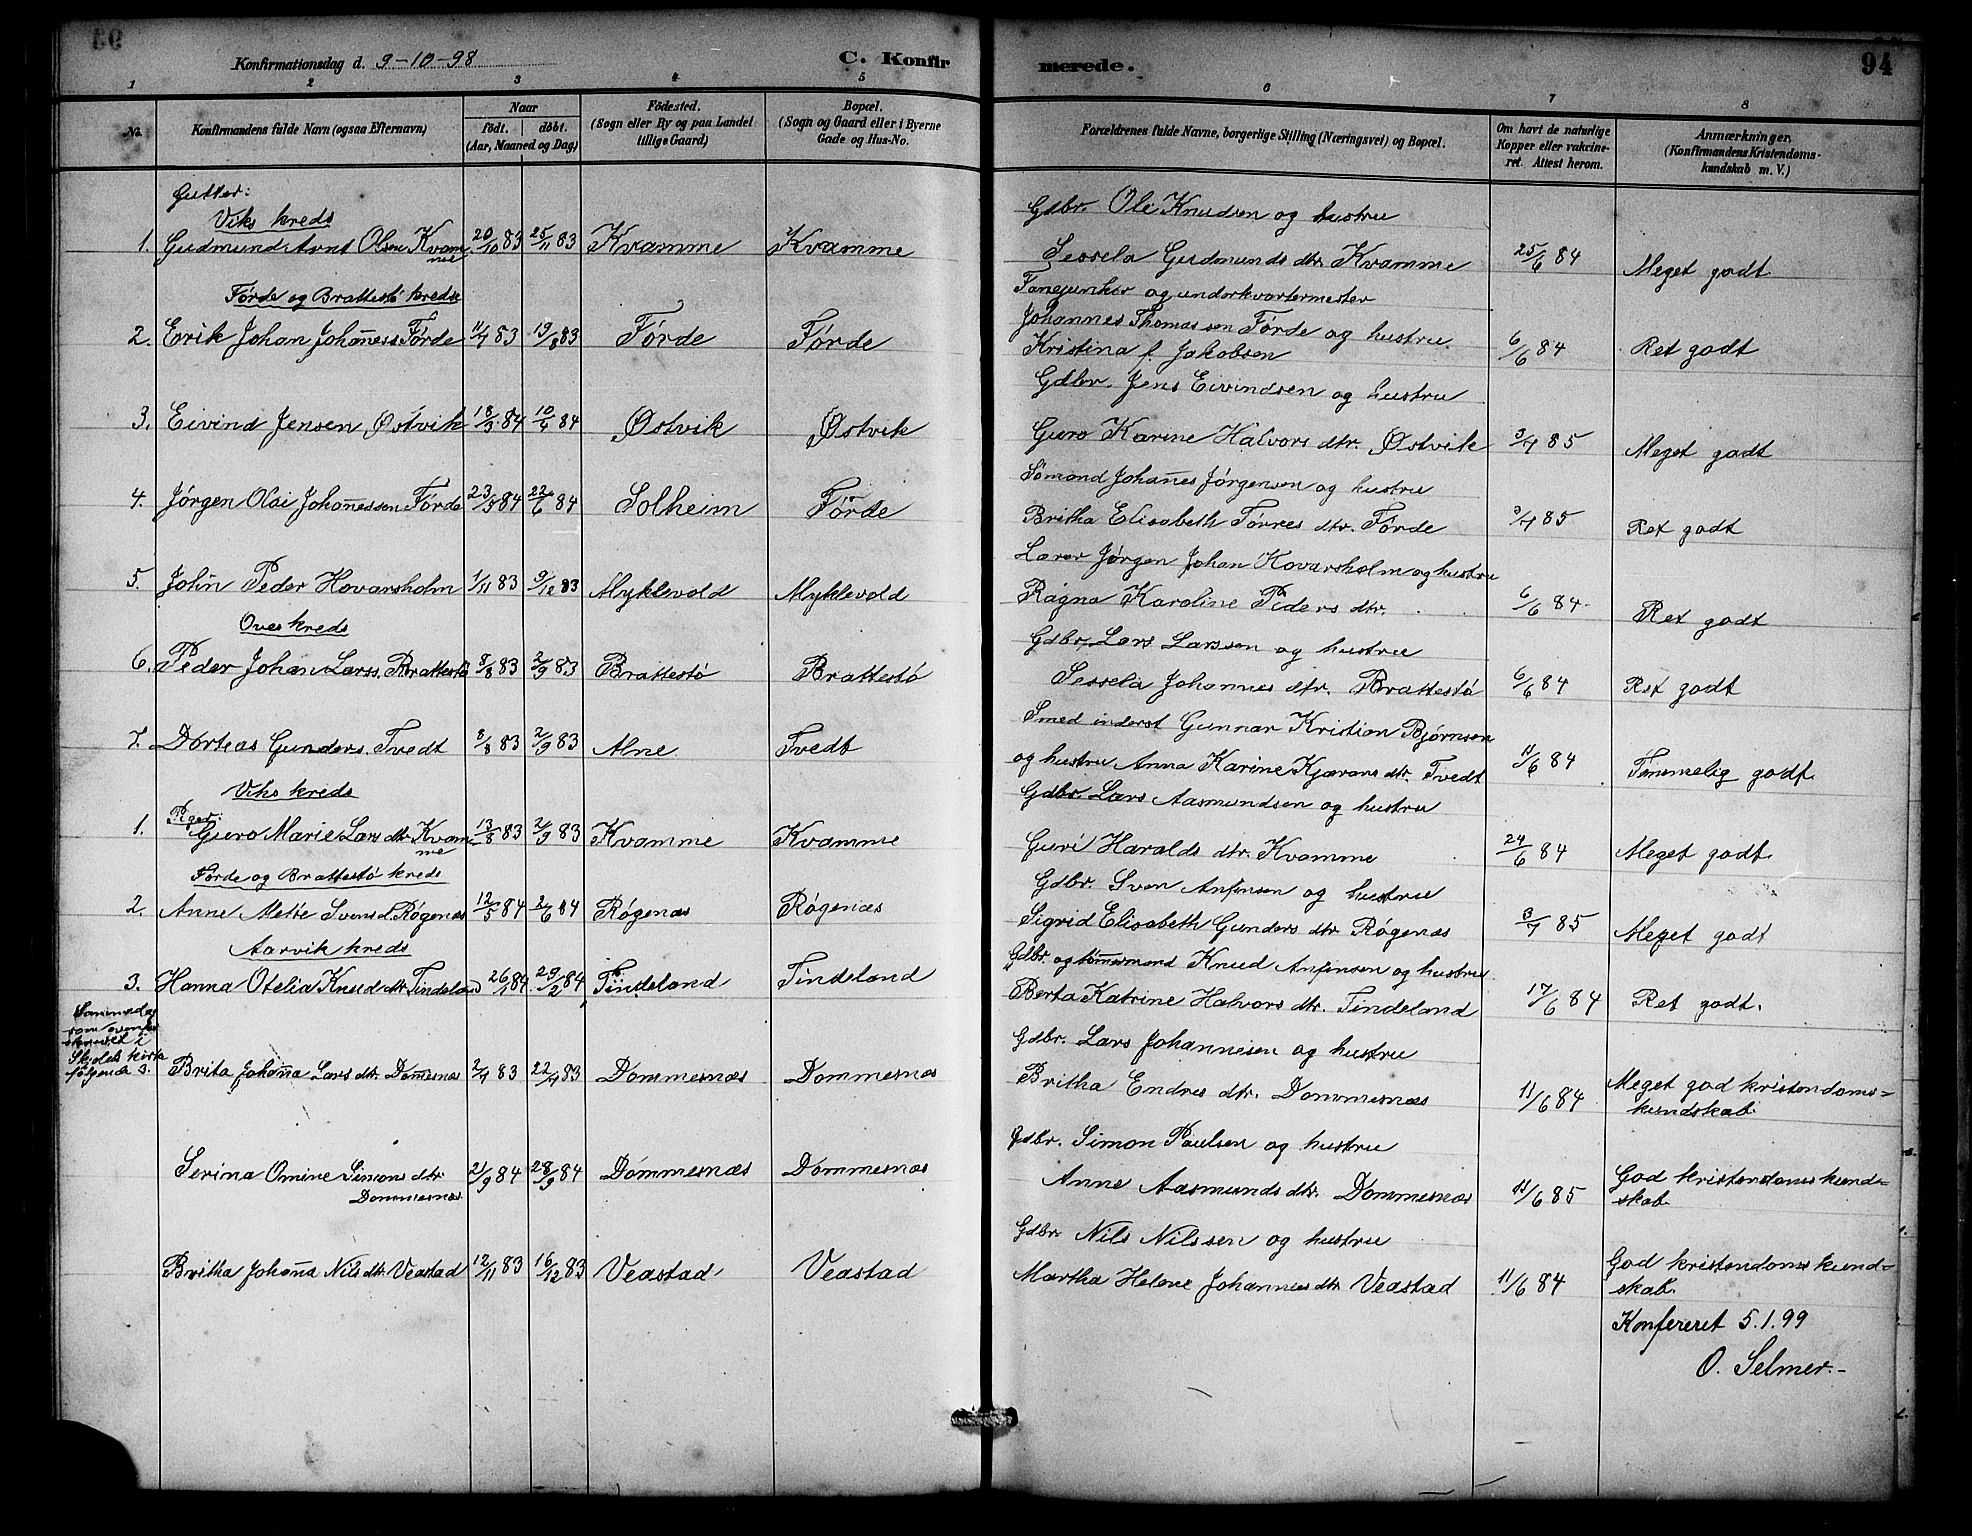 Konfirmationsdag d. 9-10-98 C. Konfirmerede. 94
1 2 3 4 5 6 7 8
No. Konfirmandens fulde Navn (ogsaa Efternavn) Naar født. døbt. (Aar, Maaned og Dag) Fødested. (Sogn eller By og paa Landet tillige Gaard) Bopæl. (Sogn og Gaard eller i Byerne Gade og Hus-No. Forældrenes fulde Navne, borgerlige Stilling (Næringsvei) og Bopæl. Om havt de naturlige Kopper eller vakcineret. Attest herom. Anmærkninger. (Konfirmandens Kristendomskundskab m. V.)
Gutter:
Viks kreds
Gdbr. Ole Knudsen og hustru
1. Gudmund Arnt Olsen Kvamme 20/10 83 25/11 83 Kvamme Kvamme Sessela Gudmunds dtr. Kvamme 25/6 84 Meget godt
Førde og Brattestø kreds
Fanejunker og underkvartermester
Johannes Thomassen Førde og hustru
2. Eirik Johan Johañess. Førde 11/7 83 19/8 83 Førde Førde Kristina f. Jakobsen 6/6 84 Ret godt
Gdbr. Jens Eivindsen og hustru
3. Eivind Jensen Østvik 18/3 84 10/4 84 Østvik Østvik Guro Karine Halvors dtr. Østvik 3/7 85 Meget godt
Sömand Johañes Jørgensen og hustru
4. Jørgen Olai Johañessen Førde 23/5 84 22/6 84 Solheim Førde Britha Elisabeth Torres dtr. Førde 3/7 85 Ret godt
Lærer Jørgen Johan Hovarsholm og hustru
5. Johñ Peder Hovarsholm 1/11 83 9/12 83 Myklevold Myklevold Ragna Karoline Peders dtr. 6/6 84 Ret godt
Oves kreds
Gdbr. Lars Larssen og hustru
6. Peder Johan Larss. Brattestø 8/8 83 2/9 83 Brattestø Brattestø Sessela Johannes dtr. Brattestø 6/6 84 Ret godt
Smed inderst Gunnar Kristian Bjørnsen
7. Dorteas Gunders. Tvedt 8/8 83 2/9 83 Alne Tvedt og hustru Anna Karine Kjærans dtr. Tvedt 11/6 84 Temmelig godt
Viks kreds
Gdbr. Lars Aasmundsen og hustru
Pger:
1. Guro Marie Lars dtr. Kvamme 13/8 83 2/9 83 Kvamme Kvamme Guri Haralds dtr. Kvamme 24/6 84 Meget godt
Førde og Brattestø kreds
Gdbr. Sven Anfinsen og hustru
2. Anne Mette Svens d. Røgenæs 12/5 84 2/6 84 Røgenæs Røgenæs Sigrid Elisabeth Gunders dtr. Røgenæs 3/7 85 Meget godt
Aarvik kreds
Gdbr. og tømmermand Knud Anfinsen og hustru
3. Hanna Otelia Knuds dtr. Tindeland 26/1 84 29/2 84 Tindeland Tindeland Berta Katrine Halvors dtr. Tindeland 17/6 84 Ret godt.
Sammedag som ovenfor skrevet i Skjolds kirke følgende 3.
Gdbr. Lars Johannesen og hustru
Brita Johaña Lars dtr. Dommesnæs 2/4 83 22/4 83 Dommesnæs Dommesnæs Britha Endres dtr. Dommesnæs 11/6 84 Meget god kristendomskundskab
Gdbr. Simon Paulsen og hustru
Serina Omine Simons dtr. Dommesnæs 2/9 84 28/9 84 Dommesnæs Dommesnæs Anne Aasmunds dtr. Dommesnæs 11/6 85 God kristendomskundskab
Gdbr. Nils Nilssen og hustru
Britha Johaña Nils dtr. Veastad 12/11 83 16/12 83 Veastad Veastad Martha Helene Johannes dtr. Veastad 11/6 84 God kristendomskundskab.
Konfereret 5.1.99
O. Selmer.